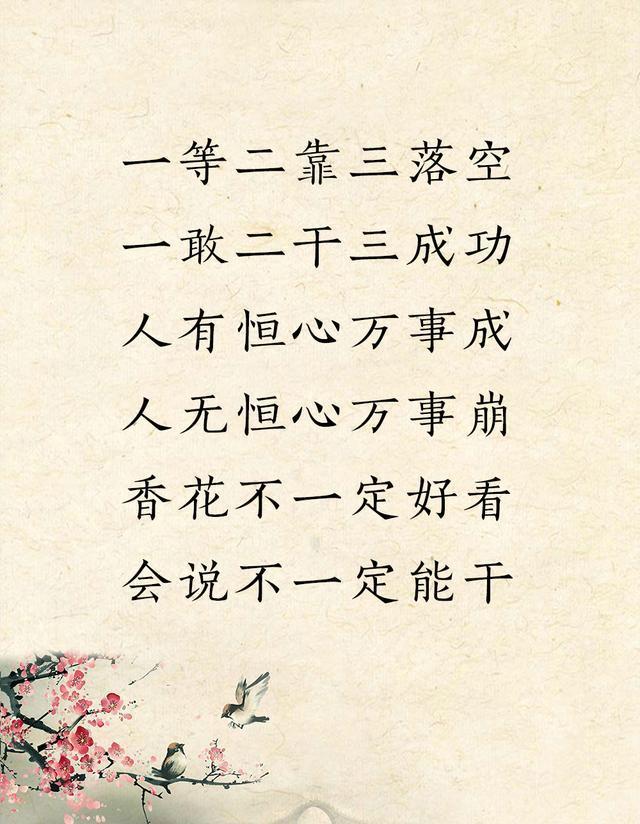 一等二靠三落空
一敢二干三成功
人有恒心万事成
人无恒心万事崩
香花不一定好看
会说不一定能干